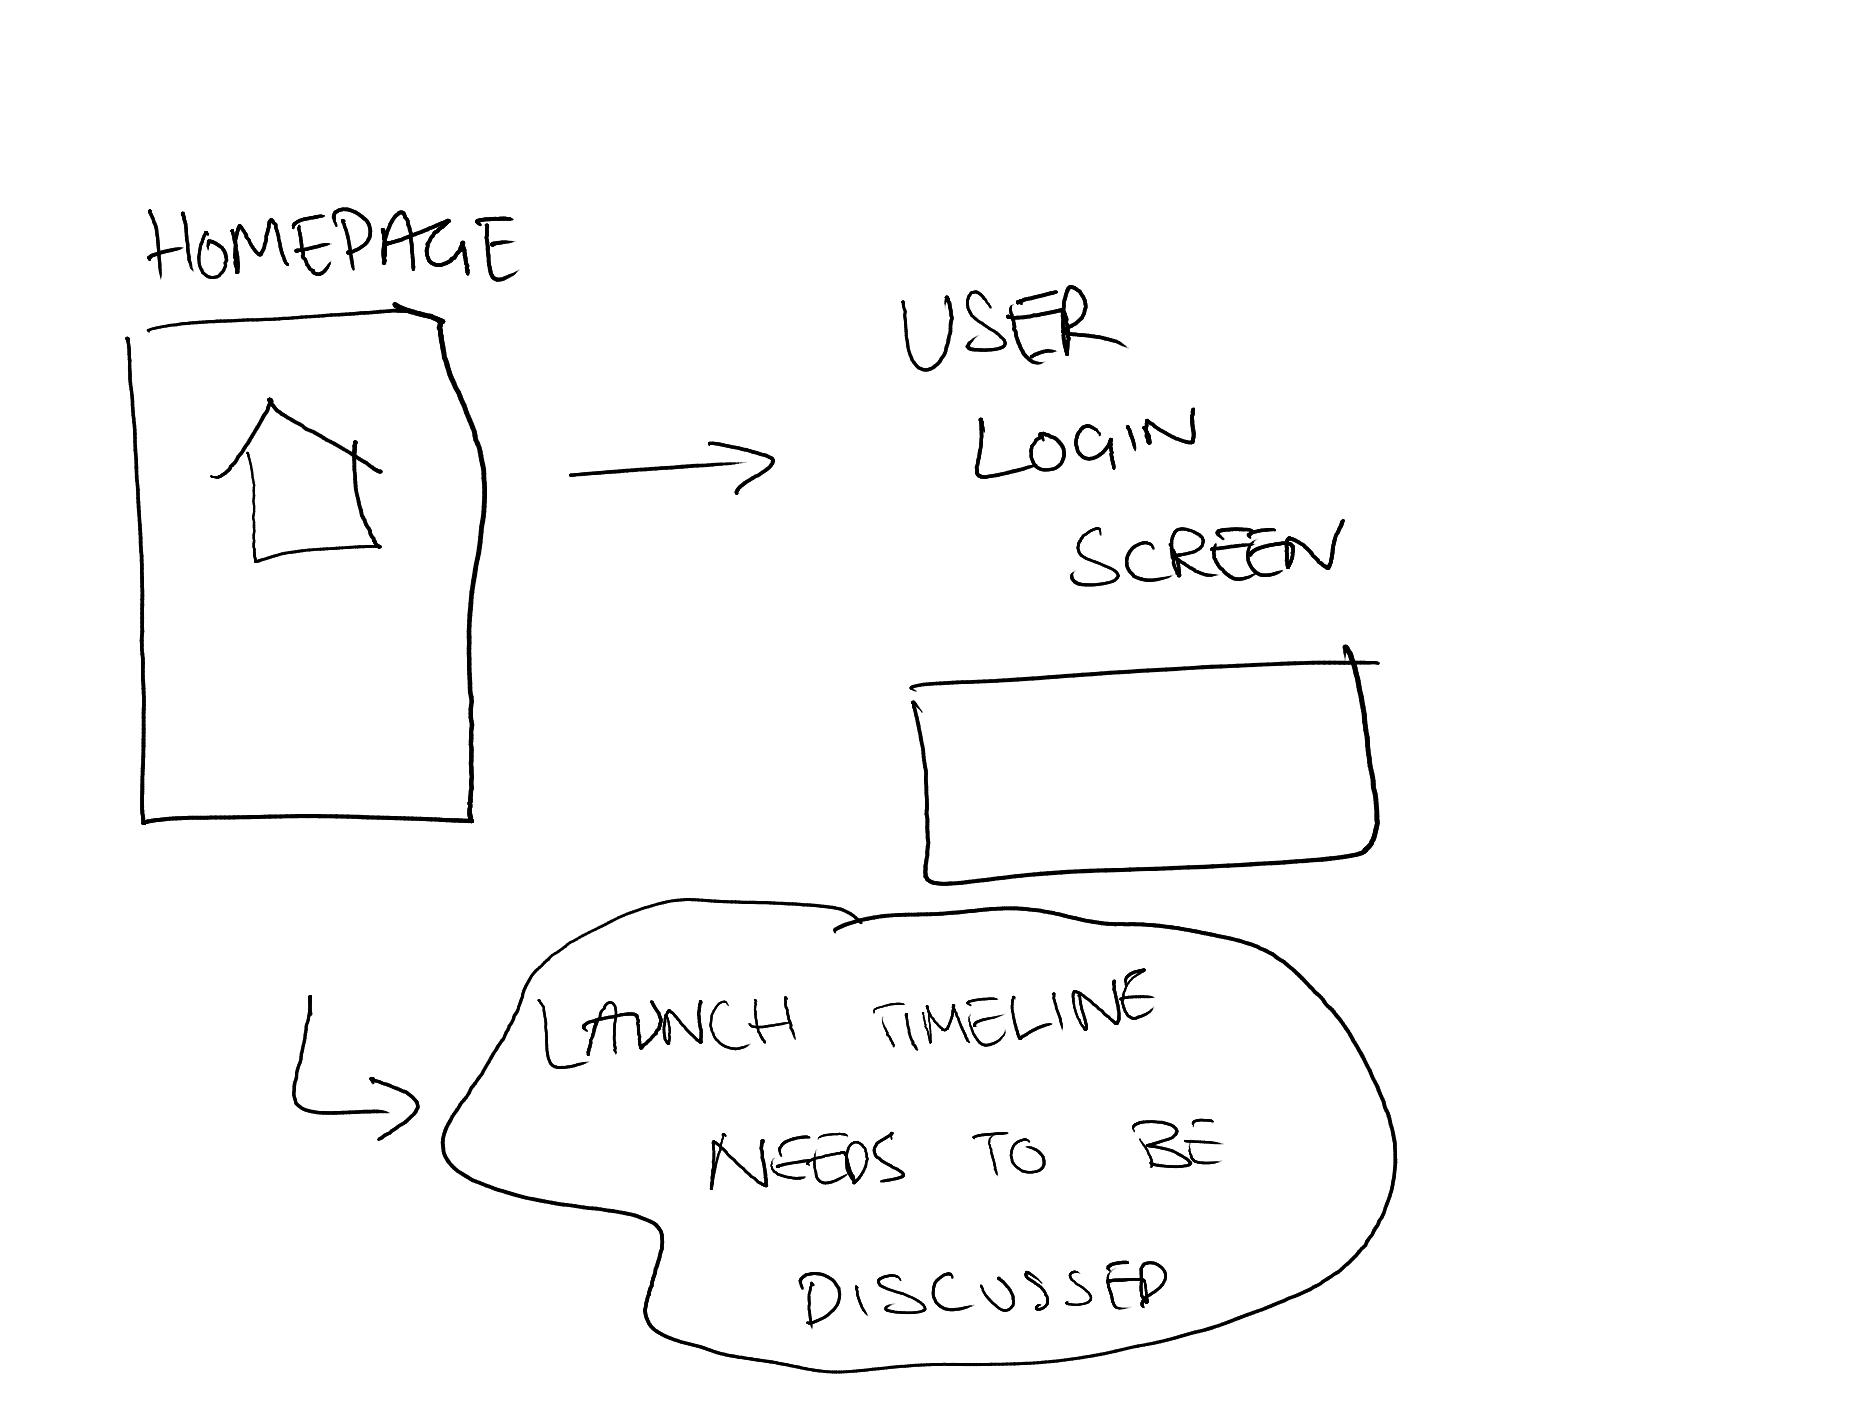 HOMEPAGE
USER
LOGIN
SCREEN
LAUNCH TIMELINE
NEEDS TO BE
DISCUSSED